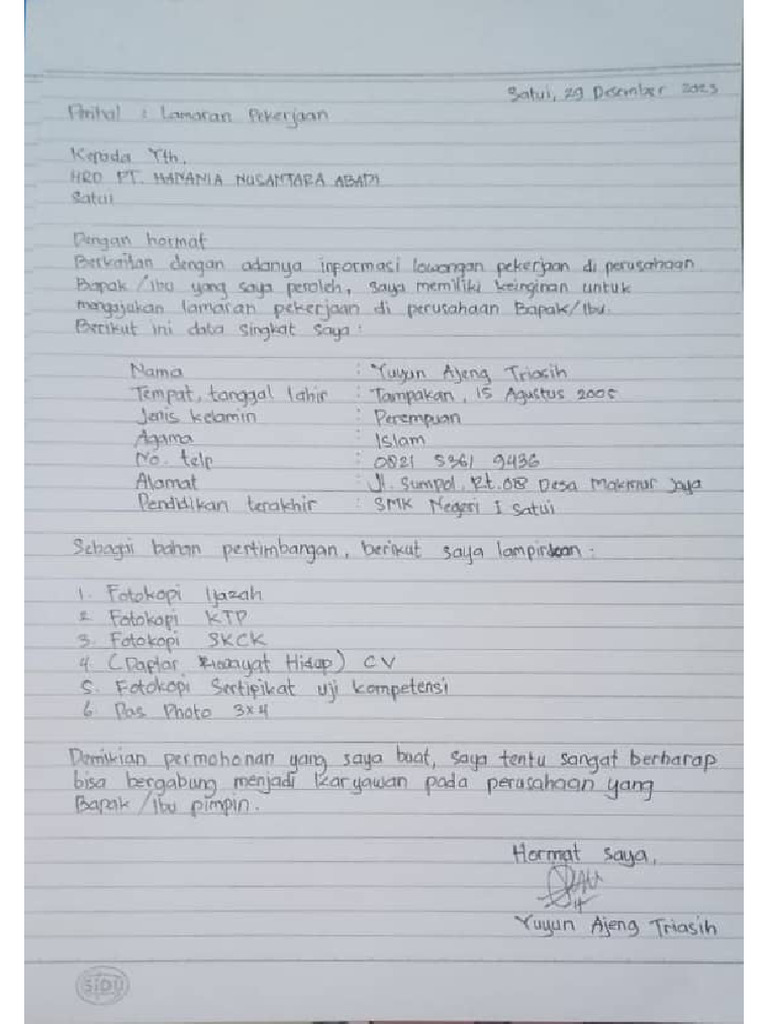 Satui, 29 Desember 2023
Perihal : Lamaran Pekerjaan
Kepada Yth,
HRD PT. HANANIA NUSANTARA ABADI
Satui
Dengan hormat
Berkaitan dengan adanya informasi lowongan pekerjaan di perusahaan
Bapak/Ibu yang saya peroleh, saya memiliki keinginan untuk
mengajukan lamaran pekerjaan di perusahaan Bapak/Ibu.
Berikut ini data singkat saya :
Nama : Yuyun Ajeng Triasih
Tempat, tanggal lahir : Tampakan, 15 Agustus 2005
Jenis kelamin : Perempuan
Agama : Islam
No. telp : 0821 5361 9436
Alamat : Jl. Sumpol, Rt.08 Desa Makmur Jaya
Pendidikan terakhir : SMK Negeri I Satui
Sebagai bahan pertimbangan, berikut saya lampirkan :
1. Fotokopi Ijazah
2. Fotokopi KTP
3. Fotokopi SKCK
4. (Daptar Riwayat Hidup) CV
5. Fotokopi Sertipikat uji kompetensi
6. Pas Photo 3x4
Demikian permohonan yang saya buat, saya tentu sangat berharap
bisa bergabung menjadi karyawan pada perusahaan yang
Bapak/Ibu pimpin.
Hormat saya,
Yuyun Ajeng Triasih
SIDU